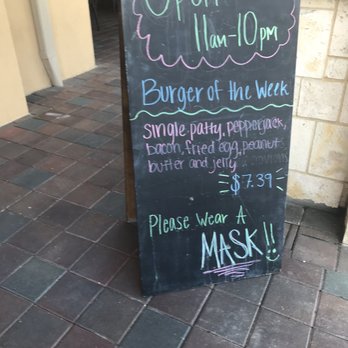 Open
11am-10pm
Burger of the Week
single patty, pepperjack,
bacon, fried egg, peanut
butter and jelly
$7.39
Please Wear A
MASK!!